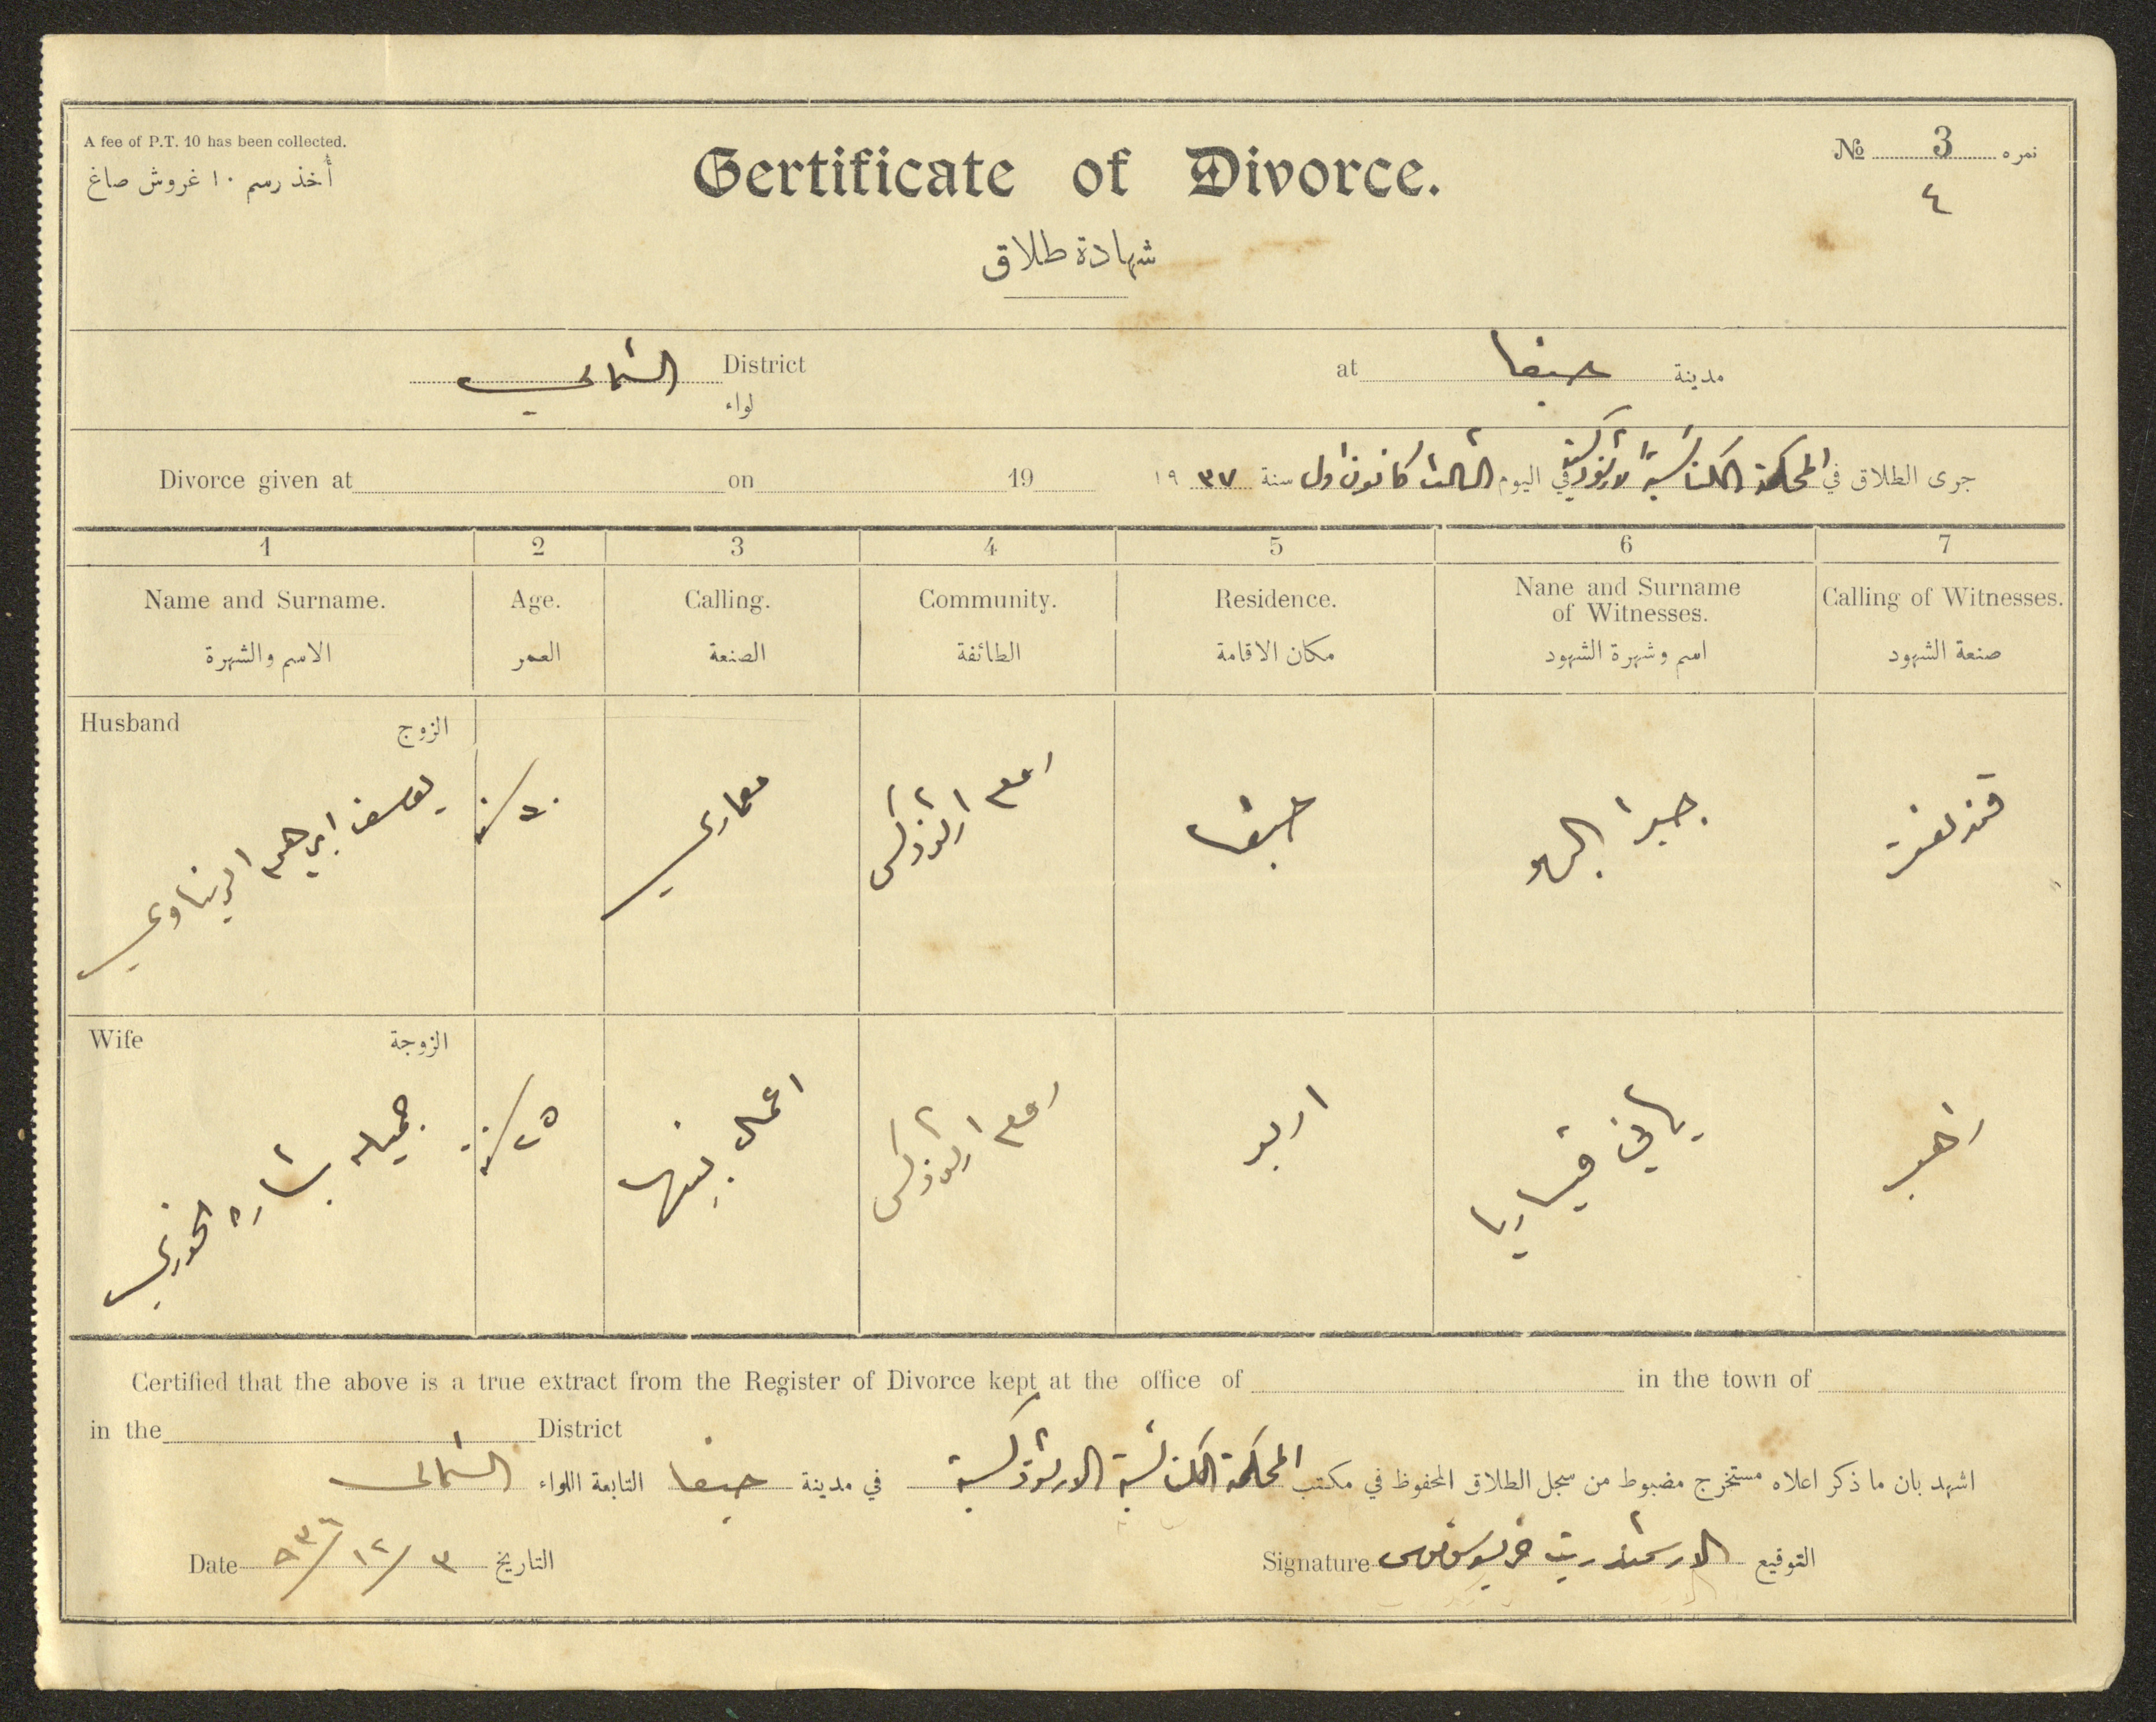 A fee of P.T. 10 has been collected.
أخذ رسم ١٠ غروش صاغ
Certificate of Divorce.
شهادة طلاق
№ 3 نمره
٤
District الشمالي
لواء
at حيفا مدينة
Divorce given at on 19
جرى الطلاق في المحكمة الكنائسية الارثوذكسية في اليوم الثالث كانون اول سنة ١٩٣٧
1 2 3 4 5 6 7
Name and Surname. Age. Calling. Community. Residence. Nane and Surname of Witnesses. Calling of Witnesses.
الاسم والشهرة العمر الصنعة الطائفة مكان الاقامة اسم وشهرة الشهود صنعة الشهود
Husband الزوج
يوسف ابرهيم الريناوي
٥٠
معماري
روم ارثوذكس
حيفا
جبرا
قندلفت
Wife الزوجة
جميله بشاره الخوري
٢٥
اعمال بيتها
روم ارثوذكس
اربد
ياني
راهب
Certified that the above is a true extract from the Register of Divorce kept at the office of in the town of
in the District
اشهد بان ما ذكر اعلاه مستخرج مضبوط من سجل الطلاق المحفوظ في مكتب المحكمة الكنائسية الارثوذكسية في مدينة حيفا التابعة اللواء الشمالي
Date ٣/١٢/٩٣٦ التاريخ
Signature الارشمندريت التوقيع